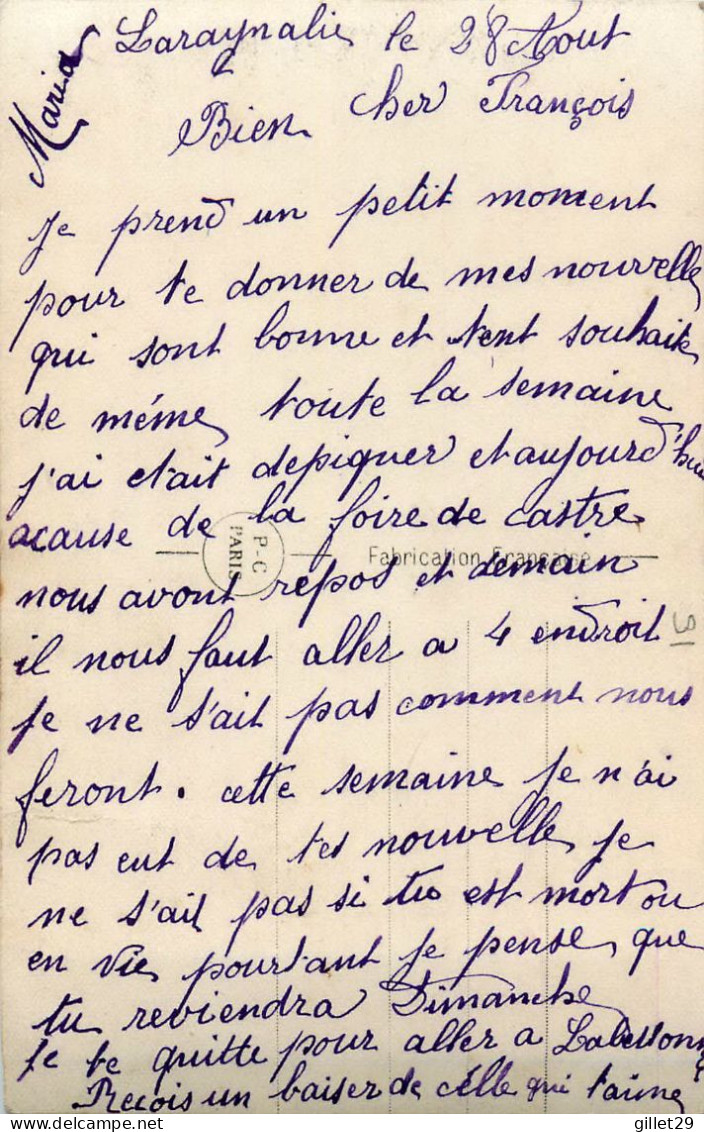 Laraynalie le 28 Aout
Maria
Bien cher François
je prend un petit moment
pour te donner de mes nouvelle
qui sont bonne et tent souhaite
de méme toute la semaine
j'ai etait depiquer et aujourd'hui
acause de la foire de castre
P-C PARIS
Fabrication Française
nous avont repos et demain
il nous faut aller a 4 endroit
je ne s'ait pas comment nous
feront. cette semaine je n'ai
pas eut de tes nouvelle je
ne s'ait pas si tu est mort ou
en vie pourtant je pense que
tu reviendra Dimanche
je te quitte pour aller a Labessonne
Recois un baiser de célle qui t'aime
gillet29